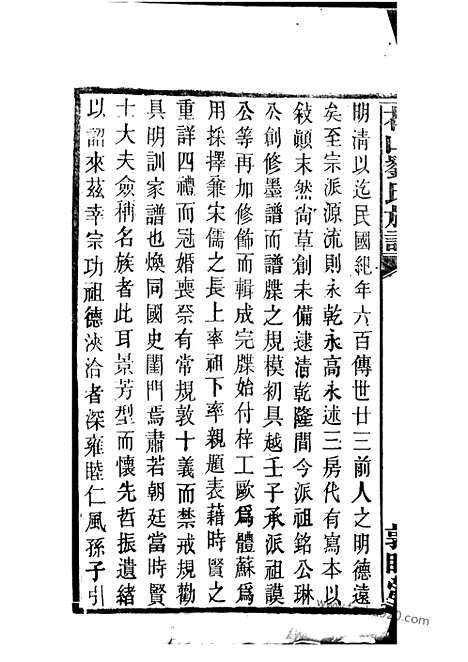 明清以迄民國紀年六百傳世廿三前人之明德遠
矣至宗派源流則永乾永高永述三房代有寫本以
敍顚末然尚草創未備逮清乾隆間今派祖銘公琳
公創修墨譜而譜牒之規模初具越壬子承派祖謨
公等再加修飾而輯成完牒始付梓工歐爲體蘇爲
用採擇兼宋儒之長上率祖下率親題表藉時賢之
重詳四禮而冠婚喪祭有常規敦十義而禁戒規勸
具明訓家譜也煥同國史閨門焉肅若朝廷當時賢
士大夫僉稱名族者此耳景芳型而懷先哲振遺緒
以詔來茲幸宗功祖德浹洽者深雍睦仁風孫子引
山劉氏族譜
敦睦堂